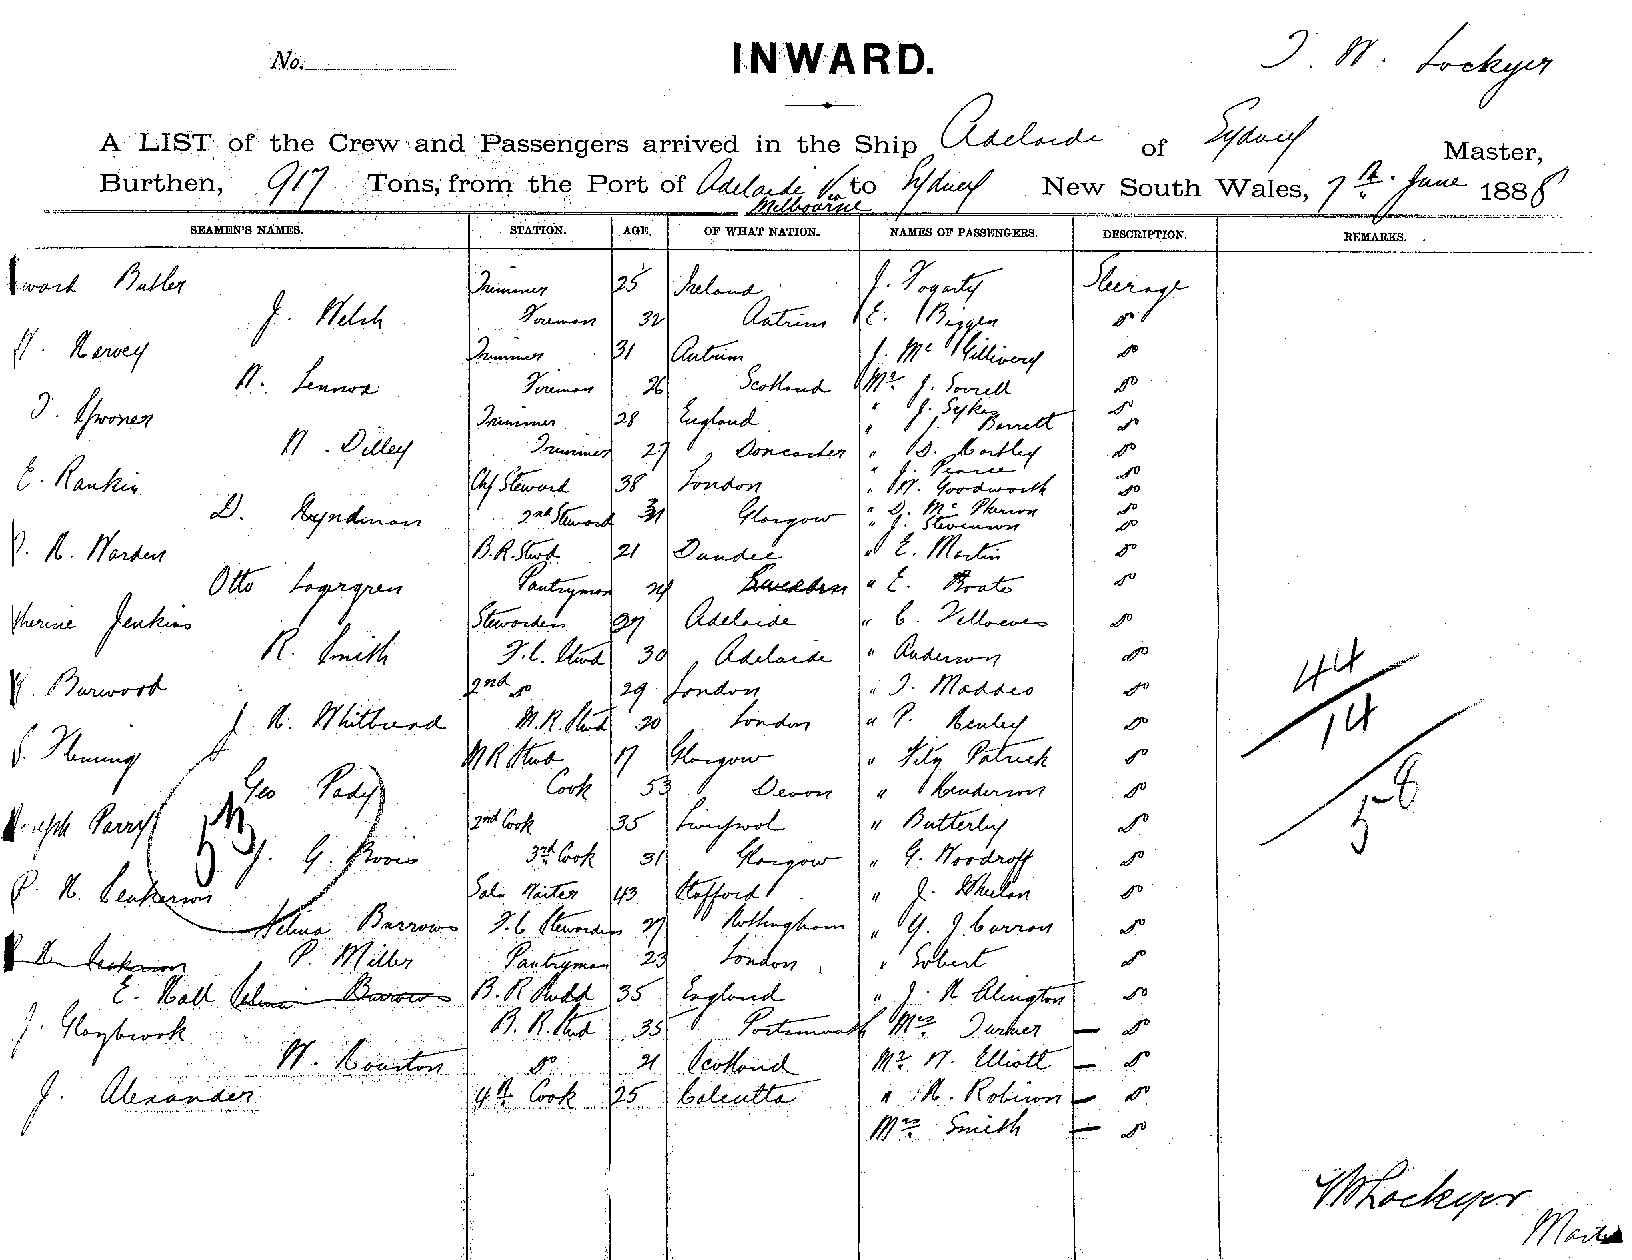 No.
INWARD.
T. W. Lockyer
A LIST of the Crew and Passengers arrived in the Ship Adelaide of Sydney Master,
Burthen, 917 Tons, from the Port of Adelaide via Melbourne to Sydney New South Wales, 7th June 1888
SEAMEN'S NAMES. STATION. AGE. OF WHAT NATION. NAMES OF PASSENGERS. DESCRIPTION. REMARKS.
Butler Trimmer 25 Ireland J. Fogarty Steerage
J. Welsh Fireman 32 Antrim E. Biggen Do
Harvey Trimmer 31 Antrim J. McGillivery Do
W. Lennox Fireman 26 Scotland Mr J. Sorrell Do
T. Trimmer 28 England " J. Sykes Do
" J. Barrett Do
W. Dilley Trimmer 27 Doncaster " D. Hartley Do
" J. Pearce Do
E. Rankin Chf Steward 38 London " W. Goodworth Do
D. Hyndman 2nd Steward Glasgow " D. McPherson Do
" J. Stevenson Do
H. Warden B.R. Stwd 21 Dundee " E. Martin Do
Otto Lagergren Pantryman 24 Sweden " E. Boats Do
Jenkins Stewardess 37 Adelaide " C. Do
R. Smith F.C. Stwd 30 Adelaide " Anderson Do
Burwood 2nd Do 29 London " T. Maddeo Do
J. H. Whittread M.R. Stwd 20 London " P. Henley Do
Fleming M R Stwd 17 Glasgow " Fitz Patrick Do
Geo Pady Cook 53 Devon " Henderson Do
Joseph Parry 2nd Cook 35 Liverpool " Butterley Do
J. G. Bovis 3rd Cook 31 Glasgow " G. Woodroff Do
P. H. Saln Waiter 43 Stafford " J. Whelan Do
Selina Barrows F.C. Stewardess 27 Nottingham " G. J. Carron Do
P. Miller Pantryman 23 London " Sobert Do
E. Hall Selina Barrows B.R. Stwd 35 England " J. H. Alington Do
J. Glaybrook B.R. Stwd 35 Portsmouth Mrs Turner — Do
W. Houston Do 21 Scotland Mr W. Elliott — Do
J. Alexander 4th Cook 25 Calcutta " H. Robinson — Do
Mrs Smith — Do
44
14
58
W Lockyer
Master